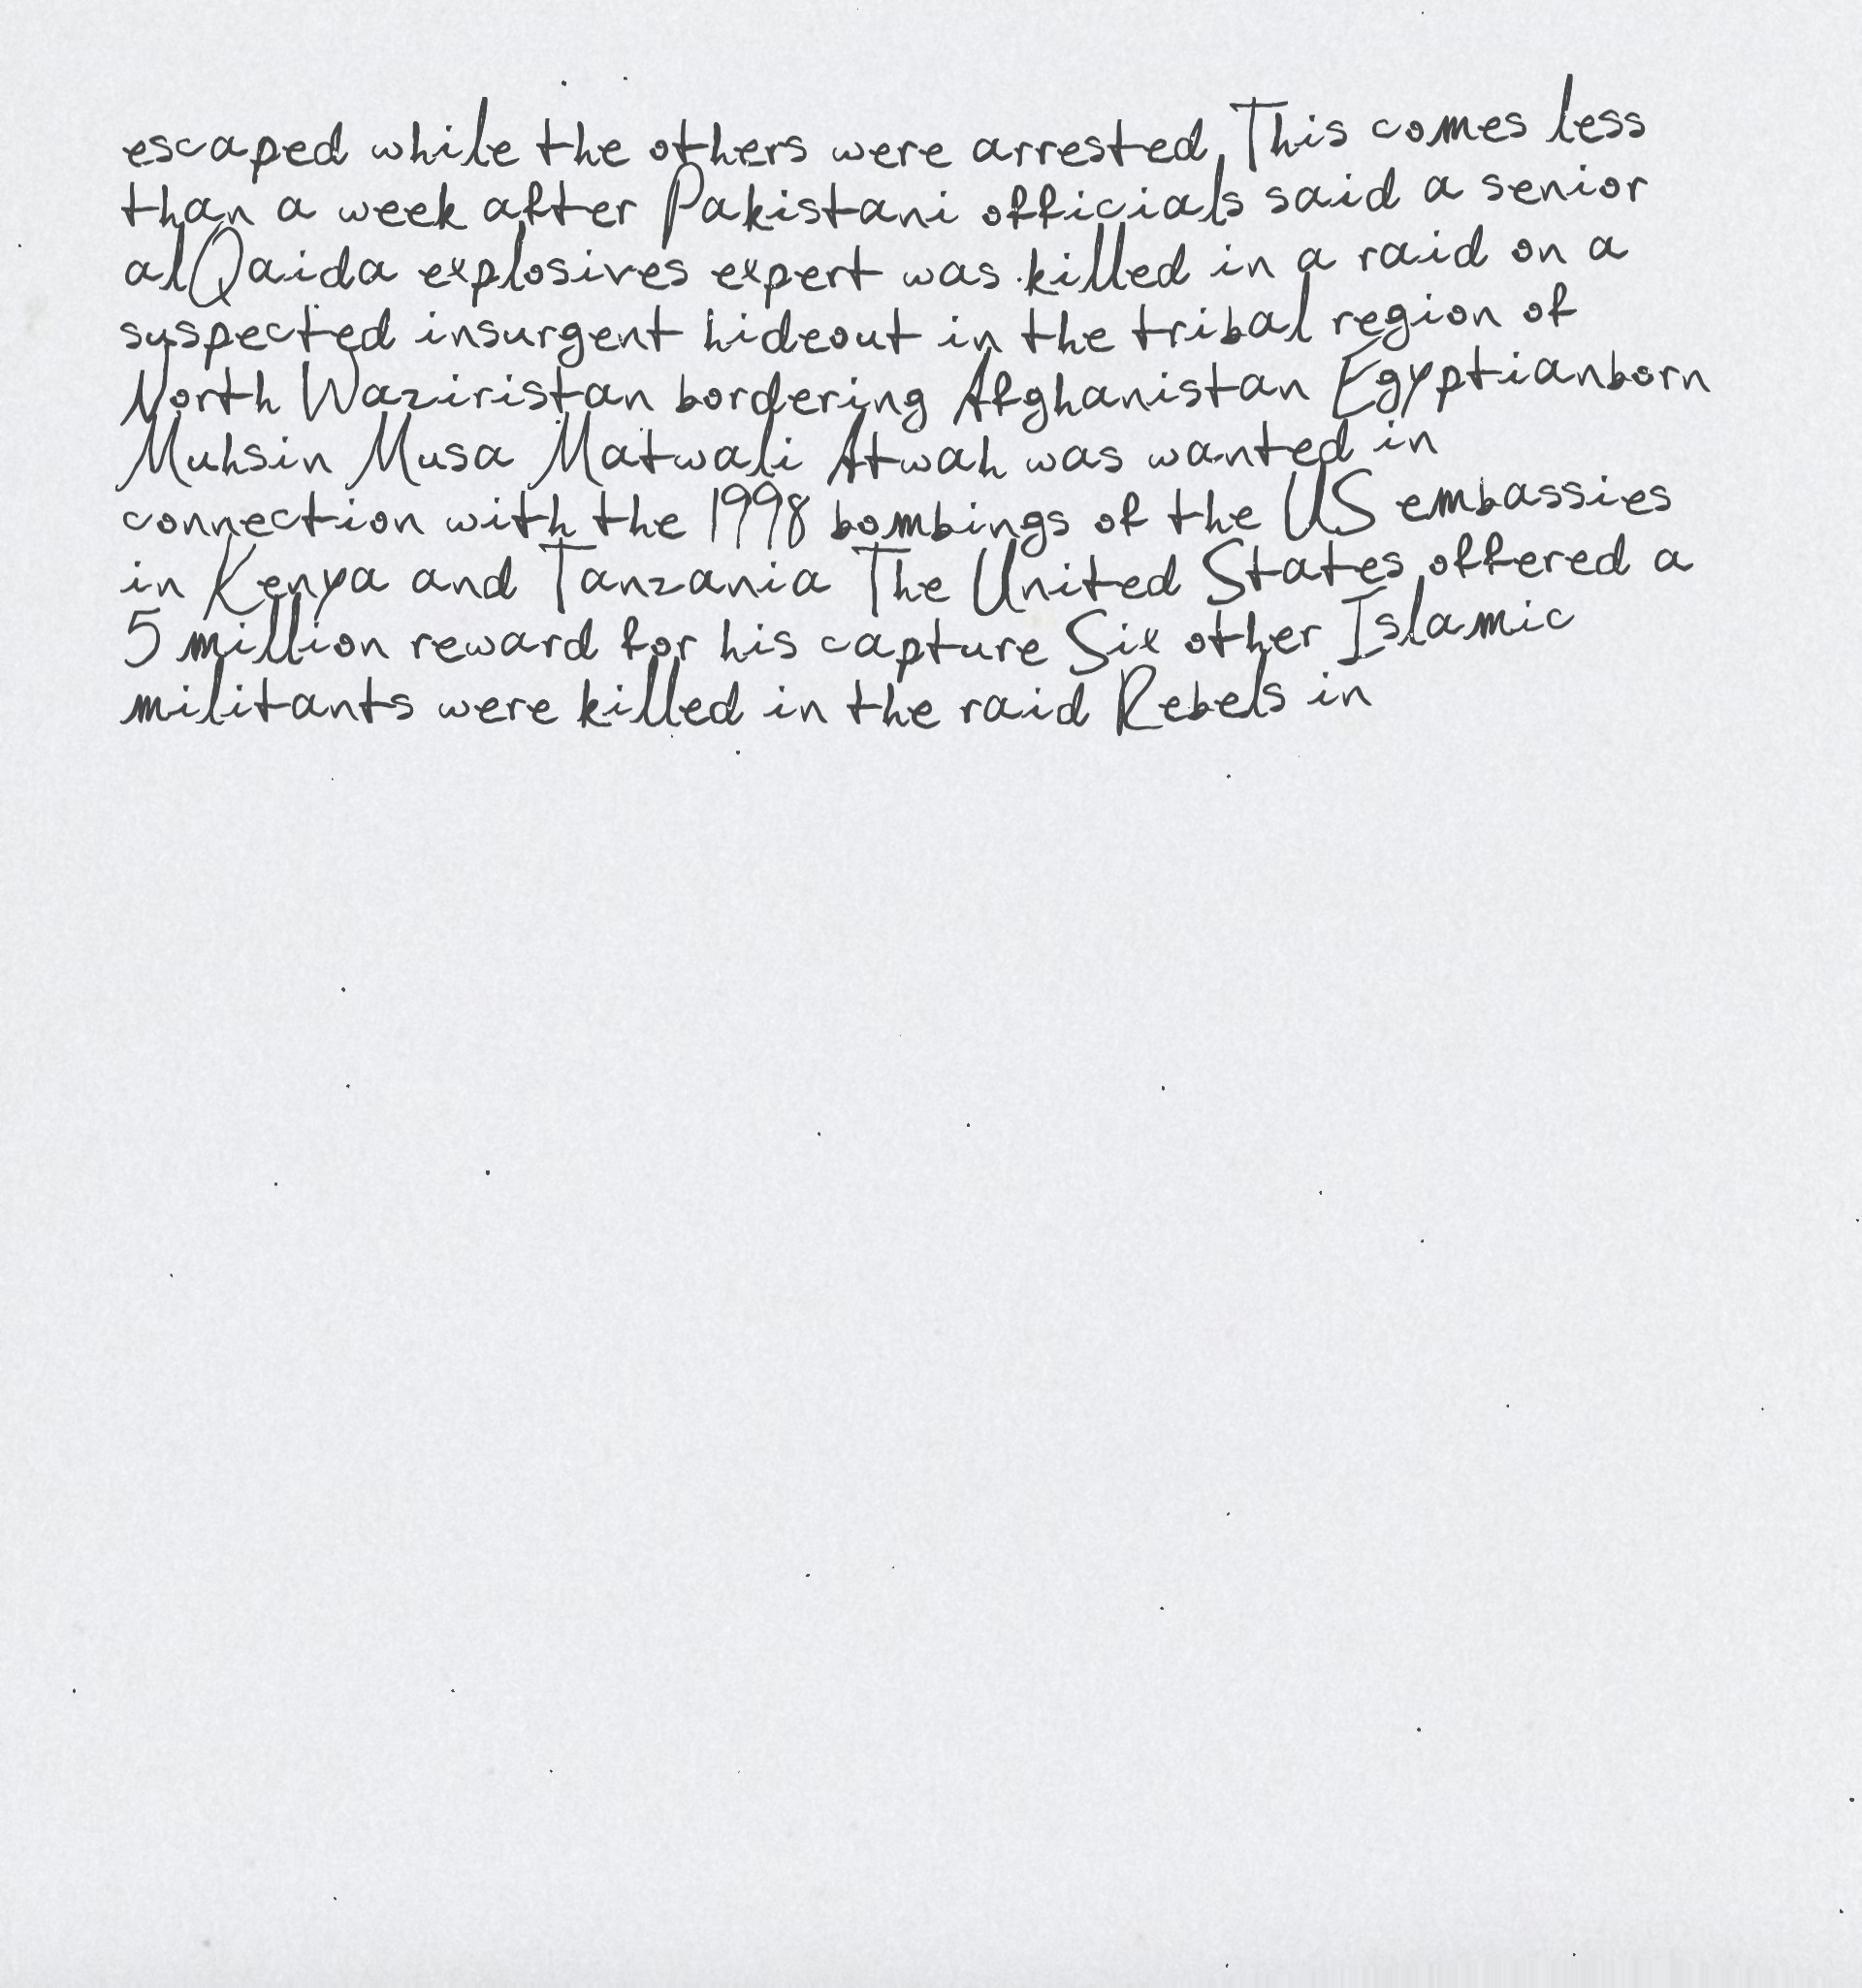 escaped while the others were arrested This comes less
than a week after Pakistani officials said a senior
alQaida explosives expert was killed in a raid on a
suspected insurgent hideout in the tribal region of
North Waziristan bordering Afghanistan Egyptianborn
Muhsin Musa Matwali Atwah was wanted in
connection with the 1998 bombings of the US embassies
in Kenya and Tanzania The United States offered a
5 million reward for his capture Six other Islamic
militants were killed in the raid Rebels in